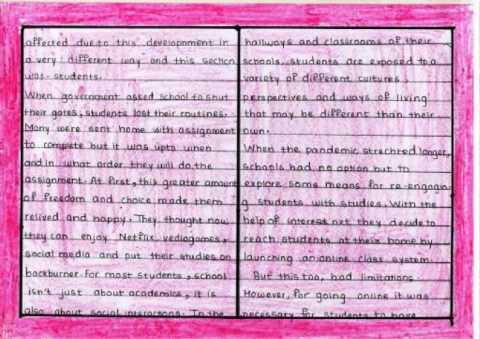 affected due to this development in
a very different way and this section
was- students.
When government asked school to shut
their gates, students lost their routines.
Many were sent home with assignment
to complete but it was upto when
and in what order they will do the
assignment. At first, this greater amount
of freedom and choice made them
relived and happy. They thought now
they can enjoy Netflix, vediogames,
social media and put their studies on
backburner. For most students, school
isn't just about academics, it is
also about social interactions. In the
hallways and classrooms of their
schools. students are exposed to a
variety of different cultures,
perspectives and ways of living
that may be different than their
own.
When the pandemic strechted longer,
schools had no option but to
explore some means for re-engagin
g students with studies. With the
help of interest net they decide to
reach students at their home by
launching an online class system.
But this too, had limitations.
However, for going online it was
necessary for students to have